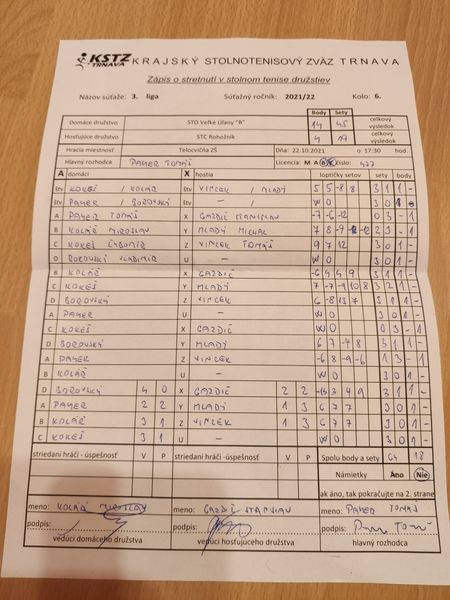 KSTZ TRNAVA KRAJSKÝ STOLNOTENISOVÝ ZVÄZ TRNAVA
Zápis o stretnutí v stolnom tenise družstiev
Názov súťaže: 3. liga Súťažný ročník: 2021/22 Kolo: 6.
Body Sety
Domáce družstvo STO Veľké Úľany "B" 14 45 celkový výsledok
Hosťujúce družstvo STC Rohožník 4 celkový výsledok
Hracia miestnosť Telocvičňa ZŠ Dňa: 22.10.2021 o 17:30 hod.
Hlavný rozhodca PAYER TOMÁŠ Licencia: M A B C číslo: 477
A domáci X hostia loptičky setov sety body
štv KOKEŠ / KOLÁR štv VINCEK / MLADÝ 5 5 -8 8 3 1 1 -
štv PAYER / BOROVSKÝ štv - / WO 3 0
A PAYER TOMÁŠ X GAZDIČ STANISLAV -7 -6 -12 0 3 - 1
B KOLÁŘ MIROSLAV Y MLADÝ MICHAL 7 8 -9
C KOKEŠ ĽUBOMÍR Z VINCEK TOMÁŠ 9 7 12 3 0 1 -
D BOROVSKÝ VLADIMÍR U - WO 3 0 1 -
B KOLÁŘ X GAZDIČ -6 4 4 9 3 1 1 -
C KOKEŠ Y MLADÝ 7 -7 -9 10 8 3 2 1 -
D BOROVSKÝ Z VINCEK 6 -8 13 7 3 1 1 -
A PAYER U - WO 3 0 1 -
C KOKEŠ X GAZDIČ 0 3 - 1
D BOROVSKÝ Y MLADÝ 6 7 -4 8 3 1 1 -
A PAYER Z VINCEK -6 8 -9 -6 1 3 - 1
B KOLÁŘ U - WO 3 0 1 -
D BOROVSKÝ 4 0 X GAZDIČ 2 2 3 4 9 3 1 1 -
A PAYER 2 2 Y MLADÝ 1 3 6 7 7 3 0 1 -
B KOLÁŘ 3 1 Z VINCEK 1 3 6 7 7 3 0 1 -
C KOKEŠ 3 1 U - WO 3 0 1 -
striedaní hráči - úspešnosť V P striedaní hráči -úspešnosť V P Spolu body a sety 64 18
Námietky Áno Nie
ak áno, tak pokračujte na 2. strane
meno: KOLÁŘ MIROSLAV meno: GAZDIČ STANISLAV meno: PAYER TOMÁŠ
podpis: podpis: podpis:
vedúci domáceho družstva vedúci hosťujúceho družstva hlavný rozhodca